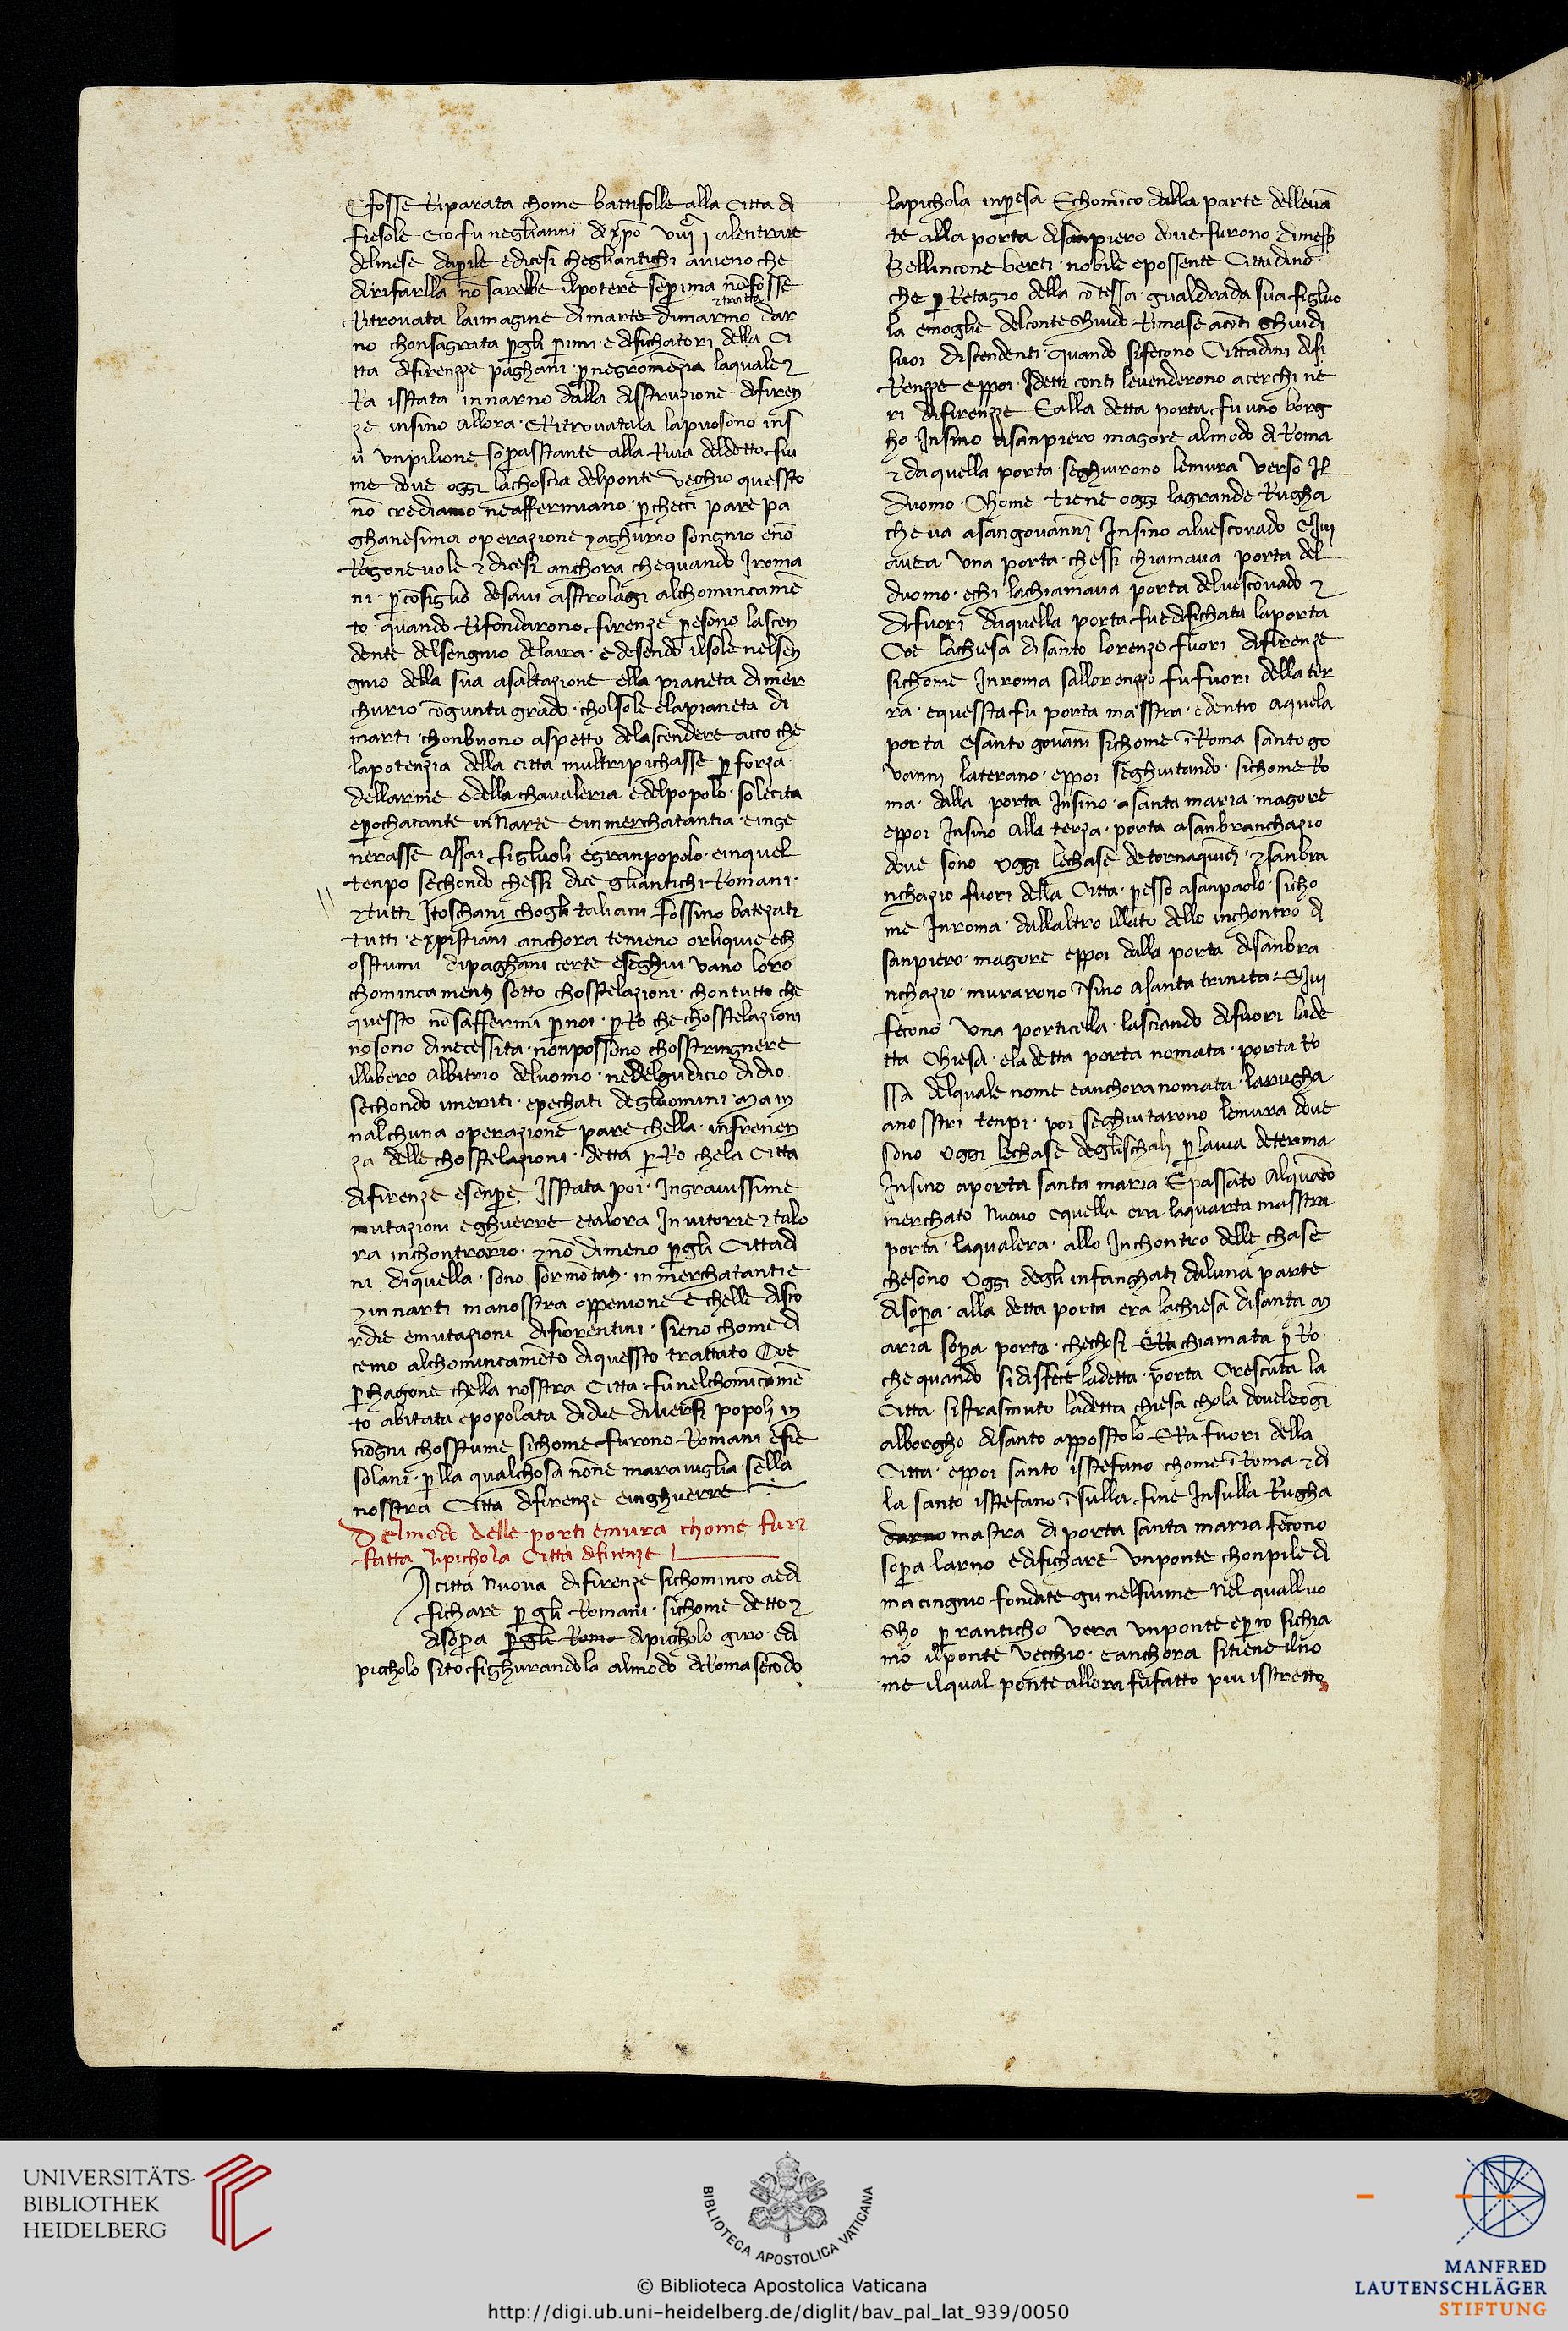 Efosse Riparata chome battifolle alla citta di
fiesole Eco fu neglianni di xpo viijᶜ j alentrare
delmese daprile edicesi chegliantichi avieno che
dirifarlla nō sarebbe ilpotere seprima nōfosse
Ritrovata laimagine dimarte dimarmo ⁊tratta dar
no chonsagrata pegli primi edifichatori della Ci
tta difirençe paghani p negromençia laquale ⁊
Ra isstata innarno dalla disstruzione difiren
ze insino allora · ERitrovatala lapuosono ins
u unpilione sopasstante alla Riva deldetto fiu
me dove oggi lachoscia delponte vechio quessto
nō crediamo neaffermiano · perchecci pare pa
ghanesima operazione ⁊aghurio songnio enō
Ragonevole ⁊dicesi anchora chequando Jroma
ni · p consiglio desavi asstrolagi alchomincamē
to quando Rifondarono firenze presono lascen
dente delsengnio delaira · edesendo ilsole nelsen
gnio della sua asaltazione ella pianeta dimer
churio congunta grado · cholsole elapianeta di
marti · chonbuono aspetto delascendere acco che
lapotenzia della citta multripichasse p forza ·
dellarme edella chavaleria edelpopolo · solecita
eprochacante innarte einmerchatantia · einge
nerasse assai figluoli egranpopolo · einquel
tenpo sechondo chessi dice gliantichi Romani ·
⁊tutti Jtoschani chogli taliani fossino batezati
tutti · expistiani anchora tenieno orliquie ech
osstumi dipaghani certe eseghui vano loro
chomincamenti sotto chosstelazioni · chontutto che
quessto nōsaffermi p noi · pRo che chosstelazioni
nosono dinecessita · nonpossono chosstringnere
illibero albitrio deluomo · nedelgudicio didio
sechondo imeriti · epechati degluomini · main
nalchuna operazione pare chella · infrenen
za delle chosstelazioni · detta pRo chela Citta
difirenze esenpre Isstata poi · Ingravissime
mutazioni eghuerre etalora Invitorie ⁊talo
ra inchontrario · ⁊nō dimeno pegli Cittadi
ni diquella · sono sormōtati · inmerchatantie
⁊innarti manosstra oppenione e chelle disco
rdie emutazioni difiorentini · sieno chome di
cemo alchomincamēto diquessto trattato Coe
p hagone chella nosstra Citta · funelchomicamē
to abitata epopolata didue diversi popoli in
nōgni chosstume sichome furono Romani efie
solani · p lla qualchosa none maraviglia · sella
nosstra Citta difirenze einghuerre
Delmodo delle porti emura chome furi
fatta lipichola citta difirenze
Acitta nuova difirenze sichominco aedi
fichare p gli Romani · sichome detto ⁊
disopra pgli Romo dipicholo giro · edi
picholo sito fighurandola almodo diRoma secōdo
lapichola inpresa Echomico dalla parte dellevā
te alla porta disanpiero dove furono dimess
Bellincone berti · nobile epossente Cittadino
che p Retagio della cōtessa · gualdrada sua figluo
la emoglie delconte Ghuido Rimase aconti Ghuidi
suoi discendenti · quando sifecono Cittadini difi
Rençe eppoi · Idetti conti levenderono acerchi ne
ri difirençe Ealla detta porta fu uno borg
ho Insino asanpiero magore almodo diRoma
⁊daquella porta seghuirono lemura verso Il
duomo · Chome tiene oggi lagrande Rugha
cheva asangovanni Insino alvescovado Eivi
avea una porta chessi chiamava porta del
duomo · echi lachiamava porta delvescovado ⁊
difuori daquella porta fuedifichata laporta
Coe lachiesa disanto lorenzo fuori difirenze
sichome Inroma sallorenzo fufuori della ter
ra · equessta fu porta masstra · edentro aquela
porta Esanto govanī sichome ī Roma santo go
vanni laterano · eppoi seghuitando · sichome Ro
ma · dalla porta Insino · asanta maria · magore
eppoi Insino alla terza · porta asanbranchazio
dove sono oggi lechase detornaquinci · ⁊sanbra
nchazio fuori della Citta · presso asanpaolo · sicho
me Inroma · dallaltro illato dello inchontro di
sanpiero · magore eppoi dalla porta disanbra
nchazio · murarono īsino asanta trinita · Eivi
fecono una porticella · lasciando difuori lade
tta chiesa · eladetta porta nomata · porta Ro
ssa delquale nome eanchora nomata · larugha
anosstri tenpi · poi seghuitarono lemura dove
sono oggi lechase deglischali p lavia determa
Insino aporta santa maria Epassato alquāto
merchato nuovo equella era laquarta masstra
porta · laqualera · allo Inchontro delle chase
chesono oggi degli infanghati daluna parte
disopra · alla detta porta era lachiesa disanta m
aria sopra porta · chechosi ERa chiamata p Ro
che quando sidisfece ladetta · porta Crescuta la
Citta sistrasmuto ladetta chiesa chola doveleogi
alborgho disanto appostolo ERa fuori della
Citta · eppoi santo isstefano chome ī Roma ⁊di
la santo isstefano īsulla fine Insulla Rugha
darno mastra di porta santa maria fecono
sopra larno edifichare unponte chonpile di
macingnio fondate gunelfiume nel qualluo
Gho p ranticho vera unponte epcio sichia
mo ilponte vecchio · eanchora sitiene ilno
me ilqual ponte allora fufatto piu isstretto
UNIVERSITÄTS-
BIBLIOTHEK
HEIDELBERG
BIBLIOTECA APOSTOLICA VATICANA
© Biblioteca Apostolica Vaticana
http://digi.ub.uni-heidelberg.de/diglit/bav_pal_lat_939/0050
MANFRED
LAUTENSCHLÄGER
STIFTUNG